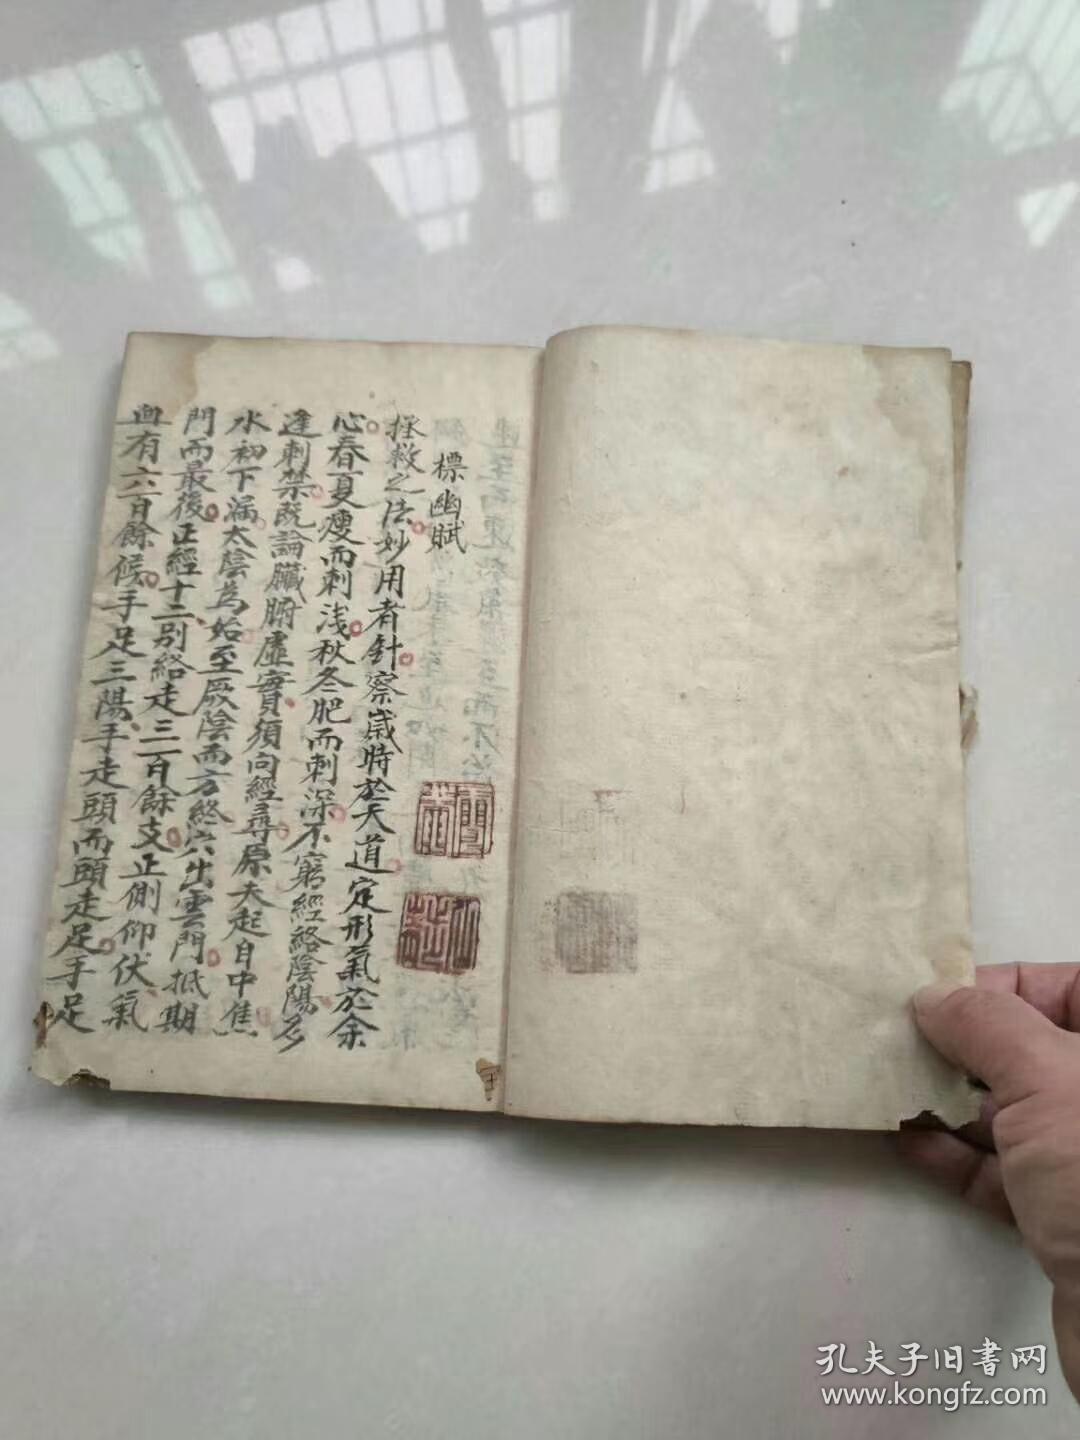 標幽賦
拯救之法妙用者針察歲時於天道定形氣於余
心春夏瘦而刺浅秋冬肥而刺深不窮經絡陰陽多
逢刺禁既論臟腑虛實須向經尋原夫起自中焦
水初下漏太陰為始至厥陰而方終穴出雲門抵期
門而最後正經十二別絡走三百餘支正側仰伏氣
血有六百餘候手足三陽手走頭而頭走足手足
孔夫子旧書网
www.kongfz.com